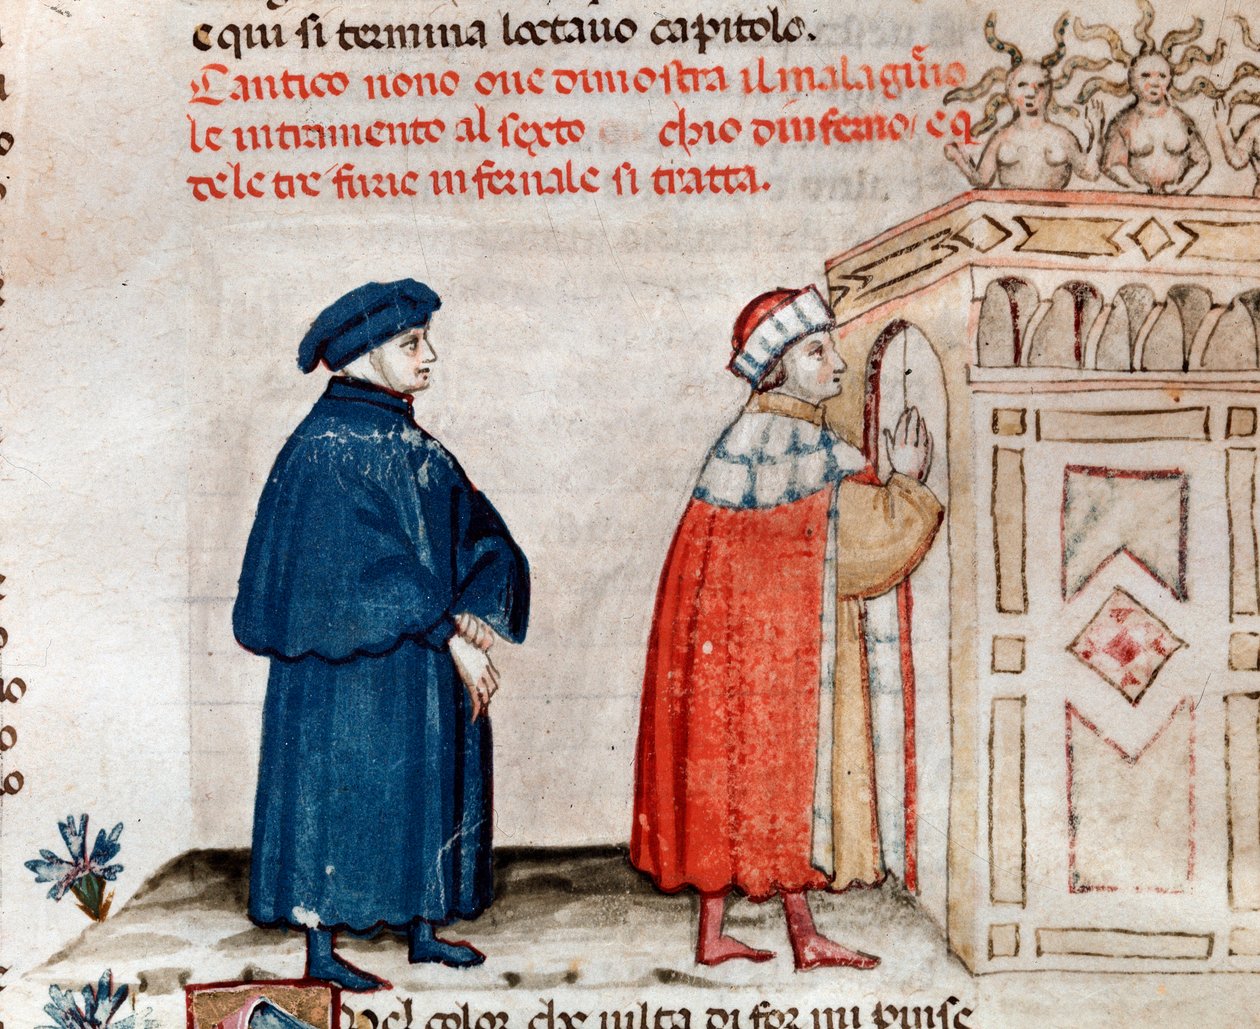 e qui si termina loctauo capitolo.
Cantico nono oue dimostra il
le intramento al sexto chio dinferno, e q
de le tre furie infernale si tratta.
uel color che uilta di for mi pinse